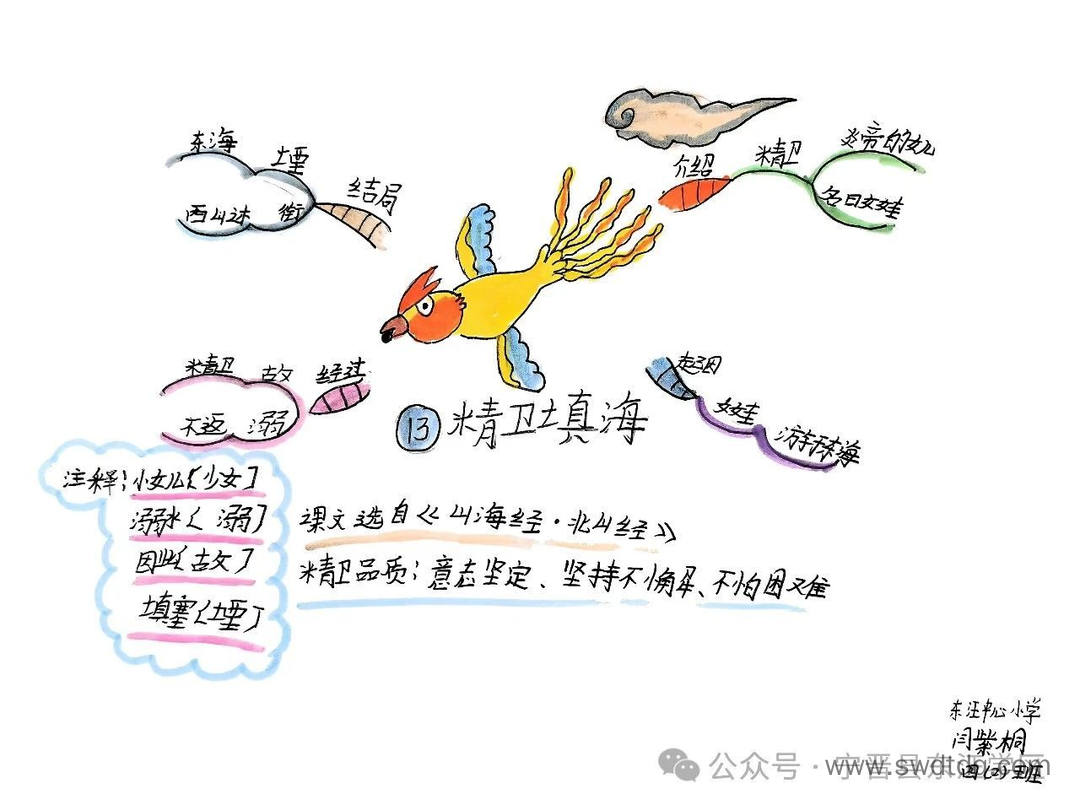 ⑬精卫填海
介绍
精卫
炎帝的女儿
名曰女娃
起因
女娃
游于东海
经过
精卫 故
不返 溺
结局
东海 堙
衔
注释：小女儿〔少女〕
溺水〔溺〕
因此〔故〕
填塞〔堙〕
课文选自《山海经·北山经》
精卫品质：意志坚定、坚持不懈、不怕困难
东汪中心小学
闫紫桐
四(2)班
公众号·宁晋县东汪学区
www.swdtdq.com